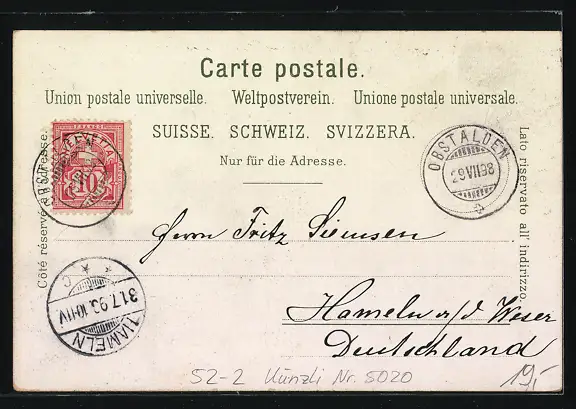 Carte postale.
Union postale universelle. Weltpostverein. Unione postale universale.
SUISSE. SCHWEIZ. SVIZZERA.
Nur für die Adresse.
Côté réservé à l'adresse.
Lato riservato all' indirizzo.
FRANCO
10
OBSTALDEN
29 VII 98
Herrn Fritz Siemsen
Hameln a/d Weser
Deutschland
HAMELN
31.7.98.10-11V
* * C
52-2 Künzli Nr. 5020
19,-